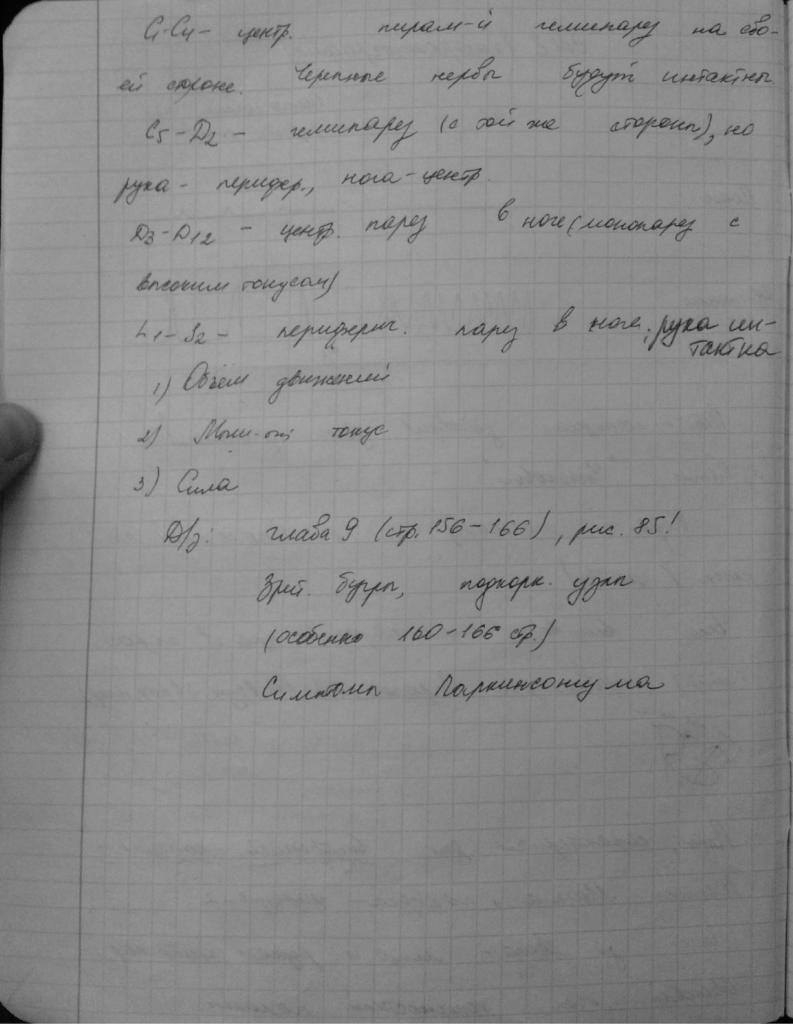 C1-C4 - центр. пирам-й гемипарез на сво-
ей стороне. Черепные нервы будут интактны
C5-D2 - гемипарез (с той же стороны), но
рука - перифер., нога - центр.
D3-D12 - центр. парез в ноге (монопарез с
высоким тонусом)
L1-S2 - периферич. парез в ноге, рука ин-
тактна
1) Объём движений
2) тонус
3) Сила
Д/з: глава 9 (стр. 156-166), рис. 85!
Зрит. бугры, подкорк. узлы
(особенно 160-166 стр.)
Симптомы Паркинсонизма